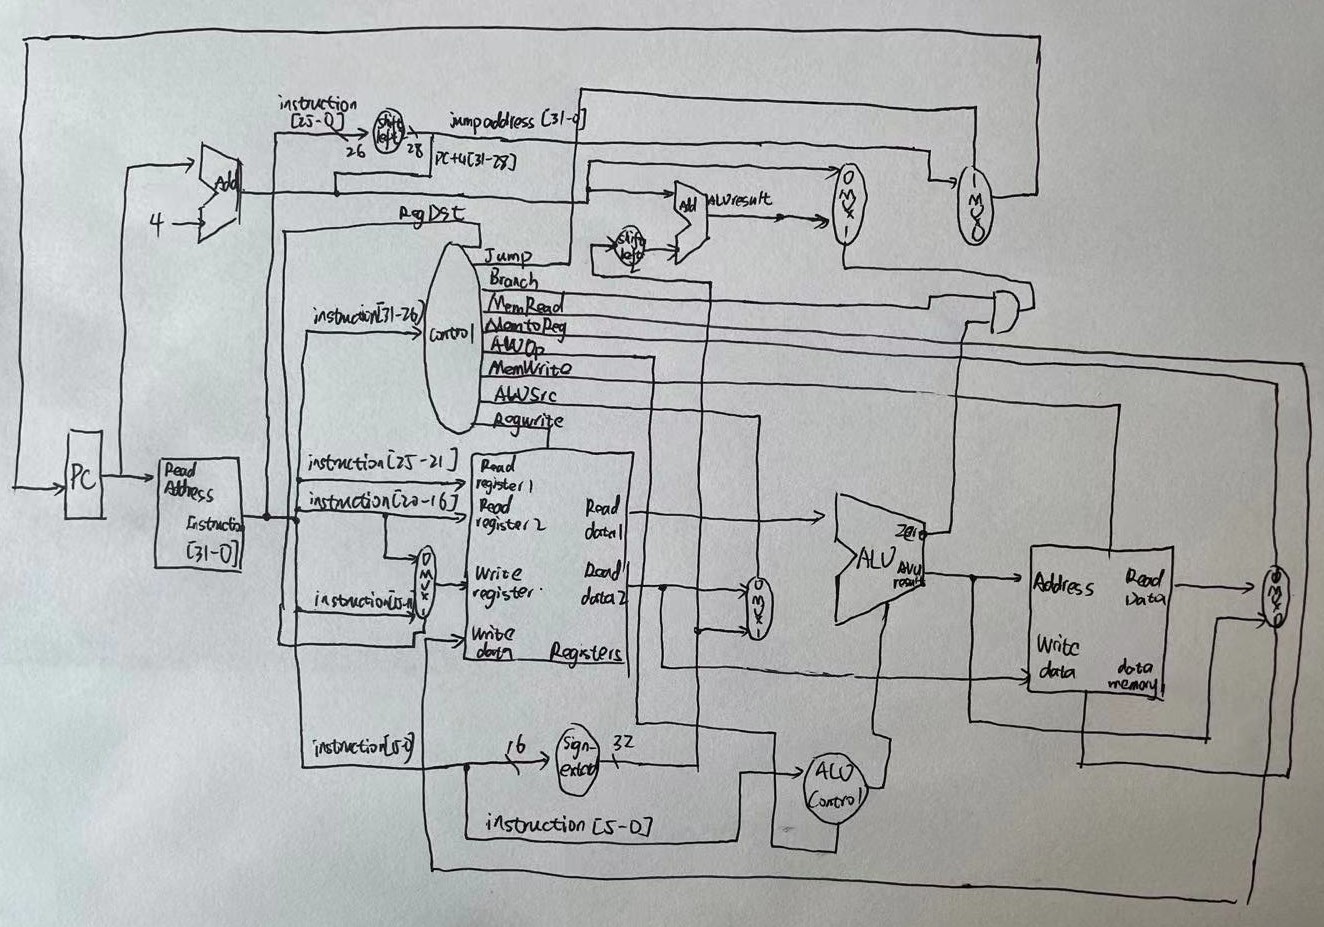 instruction
[25-0]
26
shift
left
28
jump address [31-0]
PC+4[31-28]
Add
4
RegDst
Add
ALU result
shift
left
2
0
M
U
X
1
1
M
U
X
0
Jump
Branch
MemRead
MemtoReg
ALUOp
MemWrite
ALUSrc
Regwrite
instruction[31-26]
Control
PC
Read
Address
Instruction
[31-0]
instruction[25-21]
instruction[20-16]
0
M
U
X
1
Read
register1
Read
register2
Write
register
Write
data
Read
data1
Read
data2
Registers
0
M
U
X
1
Zero
ALU
ALU
result
Address
Read
Data
Write
data
data
memory
M
U
X
instruction[15-0]
16
Sign-
32
instruction [5-0]
ALU
Control